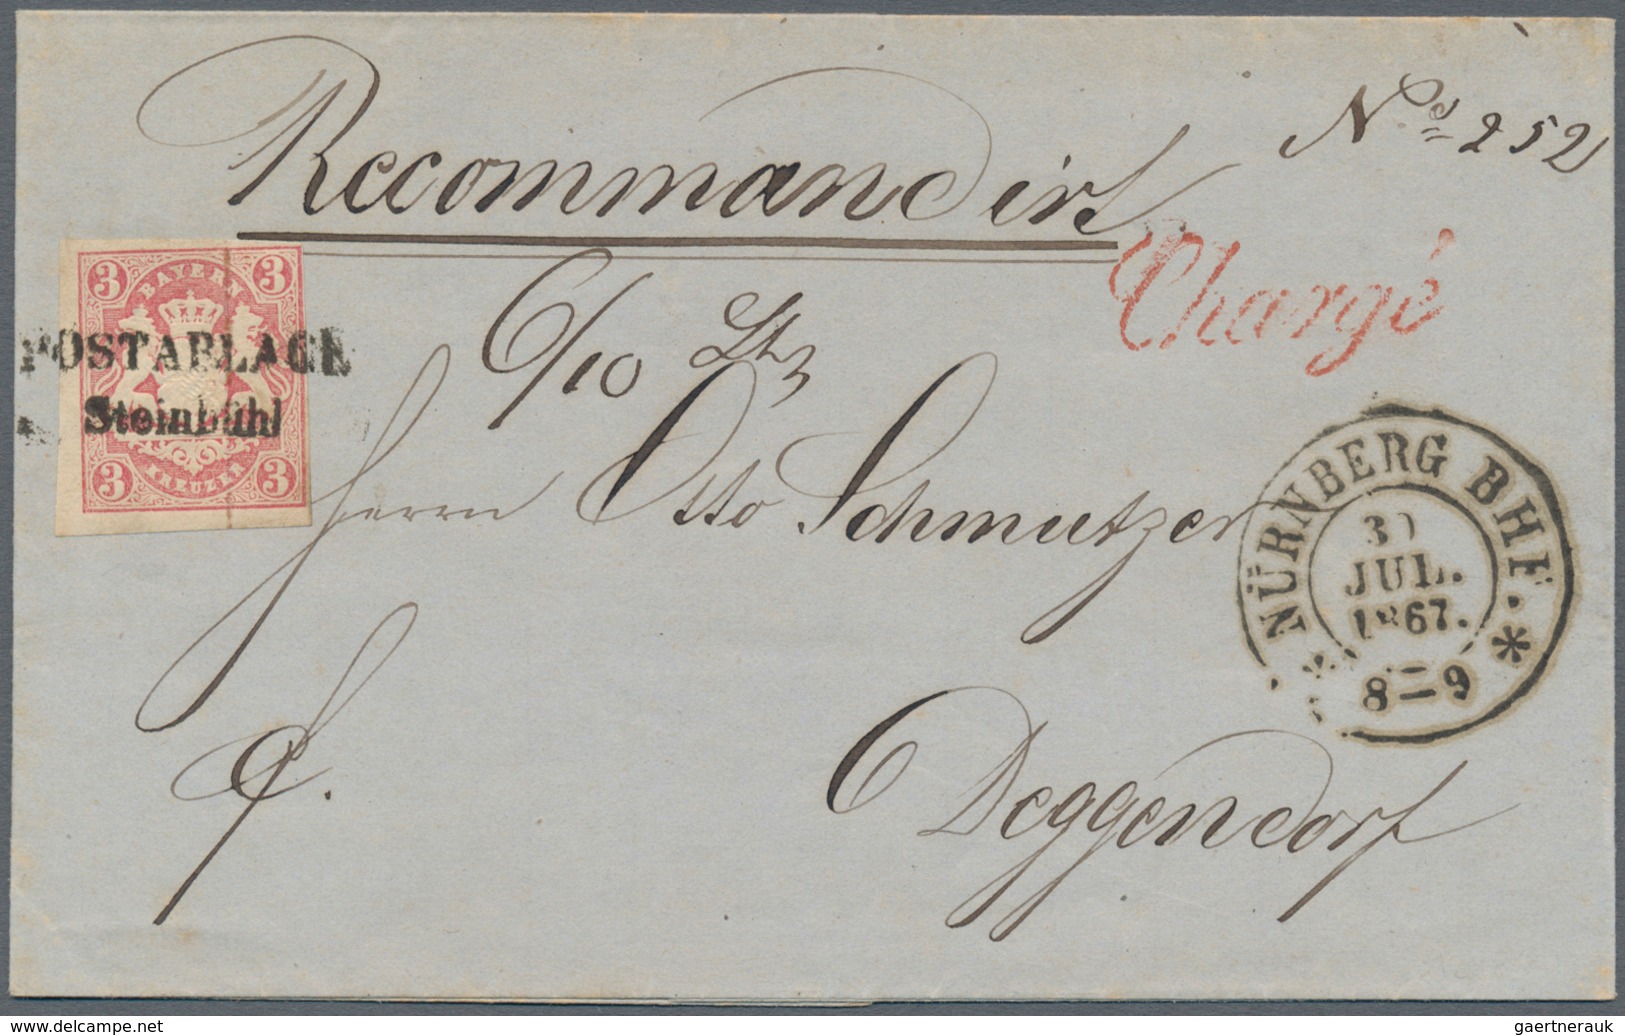 Recommandirt
No. 252
Chargé
3 BAYERN 3
POSTABLAGE
Steinbühl
3 KREUZER 3
6/10 Lth
Herrn Otto Schmutzer
NÜRNBERG BHF.
30
JUL.
1867.
8-9
Deggendorf
gaertnerauk